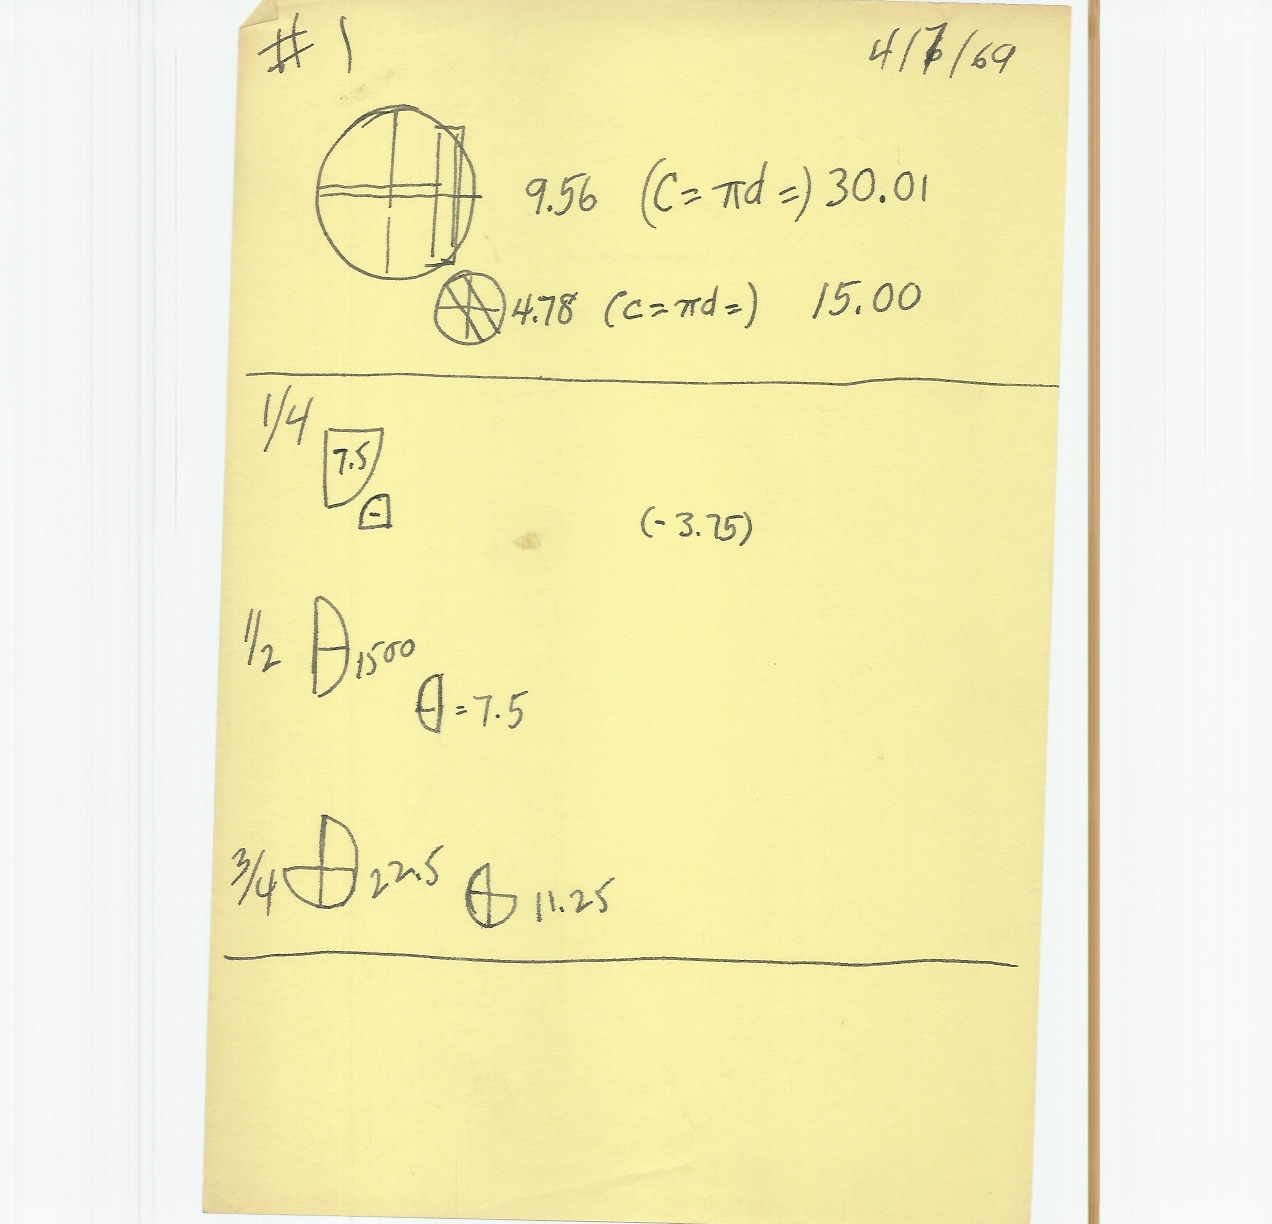 # 1 4/7/69
9.56 (C = πd =) 30.01
4.78 (c = πd =) 15.00
1/4 7.5
(- 3.75)
1/2 1500
= 7.5
3/4 22.5 11.25